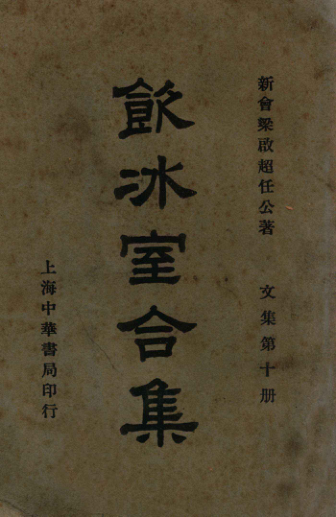 新會梁啟超任公著　文集第十册
飲冰室合集
上海中華書局印行